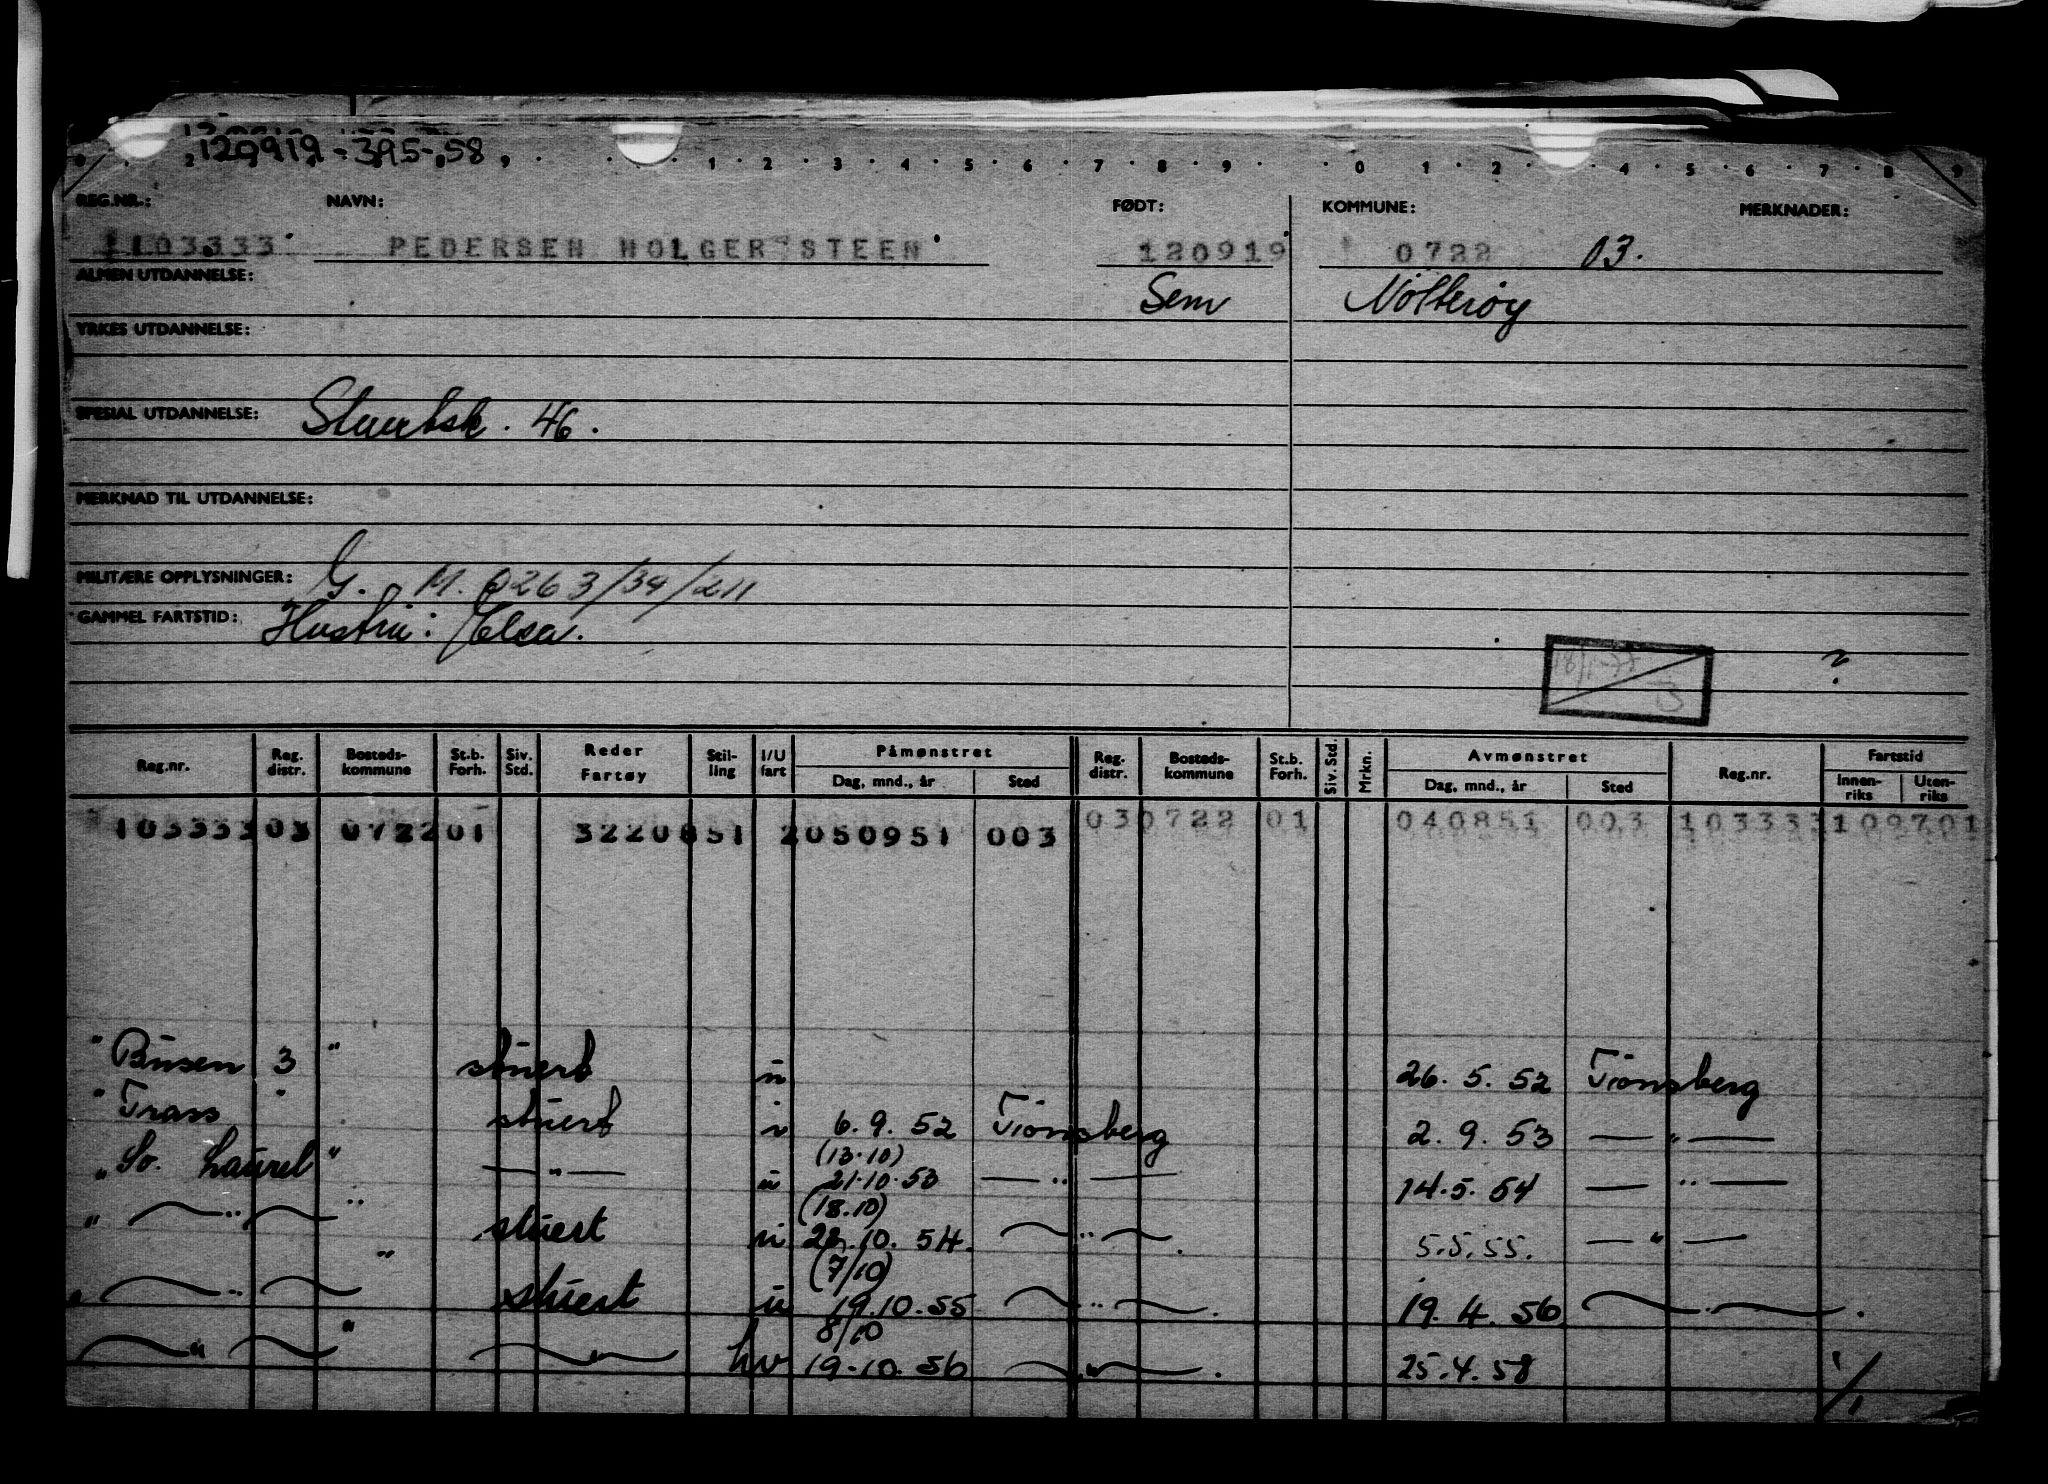 120919-395-58
1 2 3 4 5 6 7 8 9 0 1 2 3 4 5 6 7 8 9
REG.NR.: NAVN: FØDT: KOMMUNE: MERKNADER:
1103333 PEDERSEN HOLGER STEEN 120919 0722 03.
ALMEN UTDANNELSE: Sem Nøtterøy
YRKES UTDANNELSE:
SPESIAL UTDANNELSE: Stuertsk. 46.
MERKNAD TIL UTDANNELSE:
MILITÆRE OPPLYSNINGER: G. M. 0263/34/211
GAMMEL FARTSTID: Hustru: Elsa.
?
Reg.nr. Reg. distr. Bosteds-kommune St.b. Forh. Siv. Std. Reder Fartøy Stil-ling I/U fart Påmønstret Dag, mnd., år Sted Reg. distr. Bosteds-kommune St.b. Forh. Siv. Std. Mrkn. Avmønstret Dag, mnd., år Sted Reg.nr. Fartstid Innen-riks Uten-riks
10333303 072201 3220851 2050951 003 030722 01 040851 003 103333109701
" Busen 3 " stuert u 26.5.52 Tønsberg
" Trass " stuert u 6.9.52 Tønsberg 2.9.53 — " —
(13.10)
" So. Laurel " — " — u 21.10.53 — " — 14.5.54 — " —
(18.10)
" — " — " stuert u 28.10.54. — " —. 5.5.55. — " —
(7/10)
" — " — " stuert u 19.10.55 — " —. 19.4.56 — " —.
8/10
— " — " — " — hv 19.10.56 — " —. 25.4.58 1/1